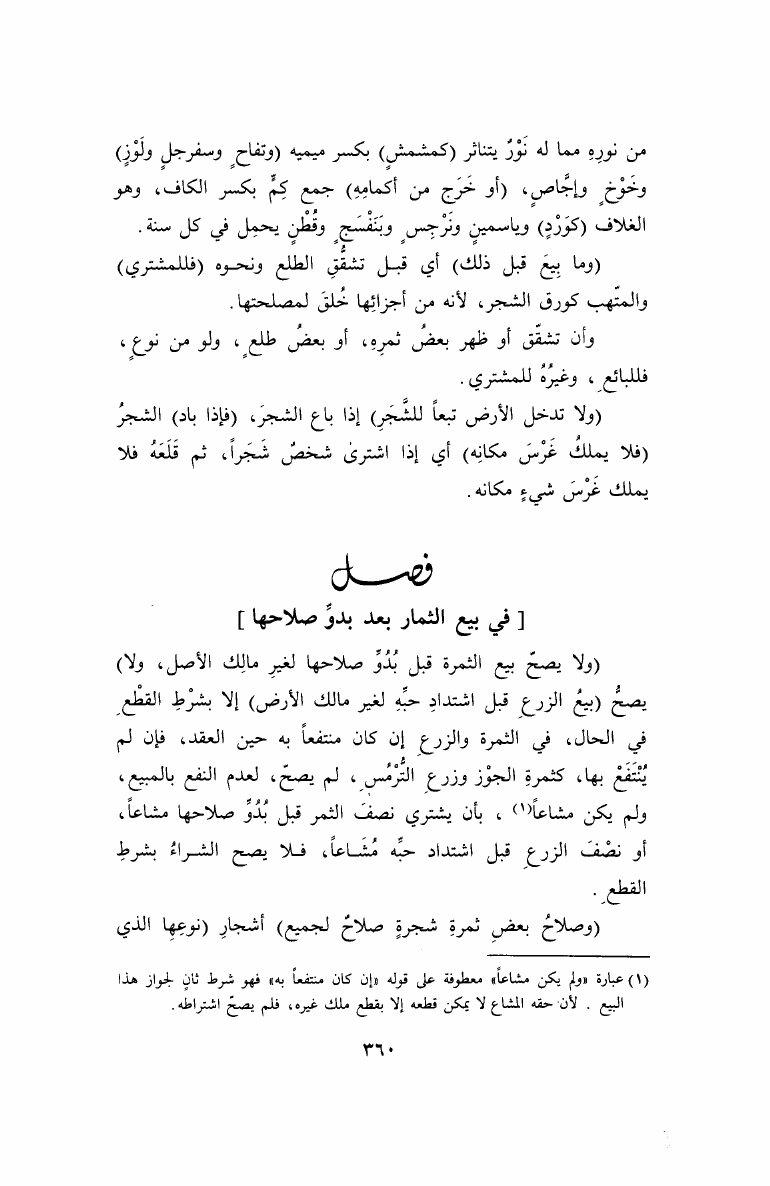 من نورِهِ مما له نَوْرٌ يتناثر (كمشمشٍ) بكسر ميميه (وتفاحٍ وسفرجلٍ ولَوْزٍ)
وخَوْخٍ وإجَّاصٍ، (أو خَرَج من أكمامِهِ) جمع كِمٍّ بكسر الكاف، وهو
الغلاف (كوَرْدٍ) وياسمينٍ ونَرْجِسٍ وبَنَفْسَجٍ وقُطْنٍ يحمِل في كل سنة.
(وما بِيعَ قبل ذلك) أي قبـل تشقُّقِ الطلع ونحـوه (فللمشتري)
والمتّهب كورق الشجر، لأنه من أجزائها خُلقَ لمصلحتها.
وأن تشقّق أو ظهر بعضُ ثمرِهِ، أو بعضُ طلعٍ، ولو من نوعٍ،
فللبائعِ، وغيرُهُ للمشتري.
(ولا تدخل الأرض تبعاً للشَّجَرِ) إذا باع الشجرَ، (فإذا باد) الشجرُ
(فلا يملكُ غَرْسَ مكانِه) أي إذا اشترىٰ شخصٌ شَجَراً، ثم قَلَعَهُ فلا
يملك غَرْسَ شيءٍ مكانه.
فصل
[ في بيع الثمار بعد بدوِّ صلاحها ]
(ولا يصحّ بيع الثمرة قبل بُدُوِّ صلاحها لغيرِ مالِك الأصل، ولا)
يصحُّ (بيعُ الزرعِ قبل اشتدادِ حبِّهِ لغير مالك الأرض) إلا بشرْطِ القطْعِ
في الحال، في الثمرة والزرعِ إن كان منتفعاً به حين العقد، فإن لم
يُنْتَفَعْ بها، كثمرةِ الجوْز وزرعِ التُّرْمُسِ، لم يصحّ، لعدم النفع بالمبيع،
ولم يكن مشاعاً(١)، بأن يشتري نصفَ الثمر قبل بُدُوِّ صلاحها مشاعاً،
أو نصْفَ الزرعِ قبل اشتداد حبِّه مُشَـاعاً، فـلا يصح الشـراءُ بشرطِ
القطعِ.
(وصلاحُ بعضِ ثمرةِ شجرةٍ صلاحٌ لجميع) أشجارِ (نوعِها الذي
(١) عبارة «ولم يكن مشاعاً» معطوفة على قوله «إن كان منتفعاً به» فهو شرط ثانٍ لجواز هذا
البيع . لأن حقه المشاع لا يمكن قطعه إلا بقطع ملك غيره، فلم يصحّ اشتراطه.
٣٦٠